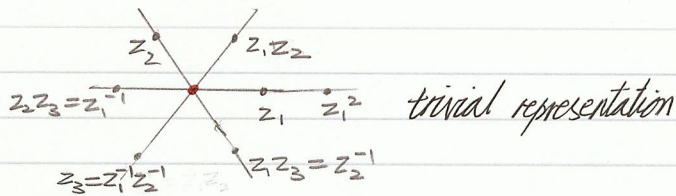 z₂ z₁z₂
z₂z₃ = z₁⁻¹ z₁ z₁² trivial representation
z₃ = z₁⁻¹z₂⁻¹ z₁z₃ = z₂⁻¹